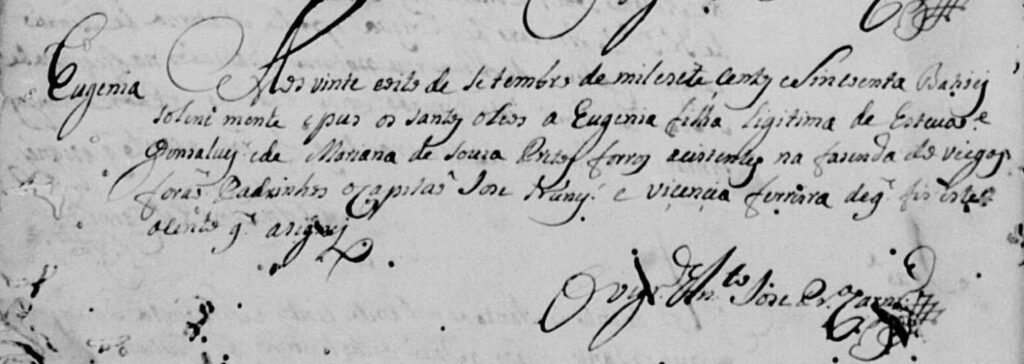 Eugenia Aos vinte eoito de Setembro de mil esete Centos e Sincoenta Baptizei
solenemente epus os santos oleos a Eugenia filha legitima de Estevaõ
Gonsalvez ede Mariana de Souza Pretos forros asistentes na fasenda do viegas
foraõ Padrinhos o capitaõ Jose Nunes e Vicencia Ferreira deq̃ fis este
asento q̃ asigney
O vigr.º An.to Jose